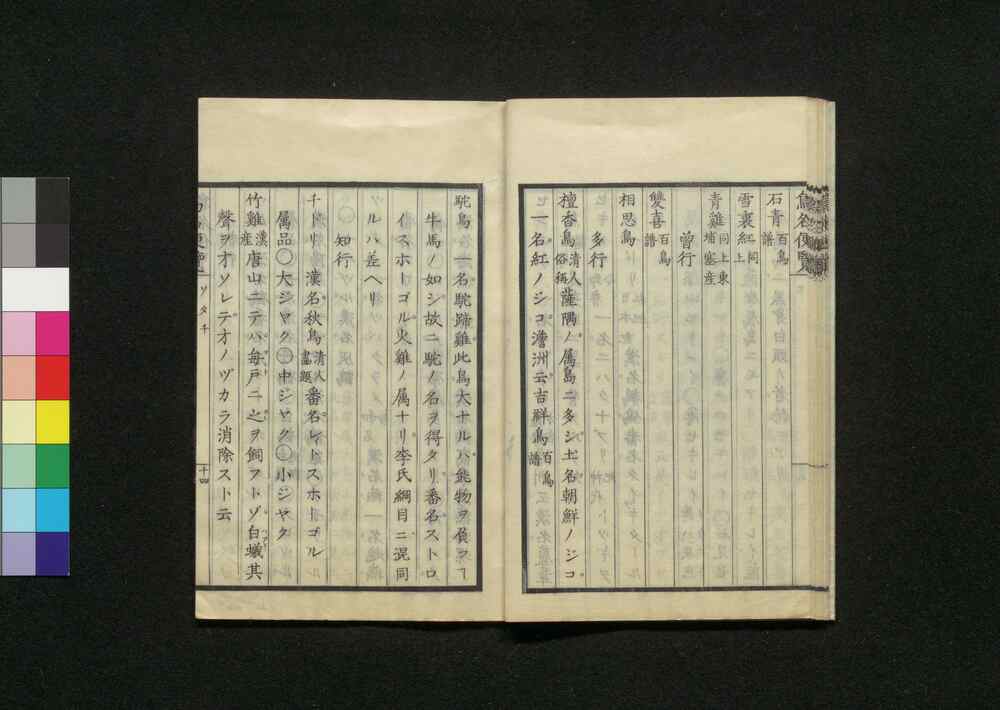 鳥名便覧
石青 百鳥譜
雪裏紅 仝同上
青雞 同上東埔寨産
曽行
雙喜 百鳥譜
相思鳥
多行
檀香鳥 清人俗稱 薩隅ノ属島ニ多シ土名朝鮮ノジコ
一名紅ノジコ澹洲云吉祥鳥 百鳥譜
駝鳥 一名駝蹄雞此鳥大ナルハ能物ヲ負フヿ
牛馬ノ如シ故ニ駝ノ名ヲ得タリ番名ストロ
イスホーゴル火雞ノ属ナリ李氏綱目ニ混同
ツルハ差ヘリ
知行
漢名秋鳥 清人畫題 番名レイトスホーゴル
属品〇大ジヤク〇中ジヤク〇小ジヤク
竹雞 漢産 唐山ニテハ毎戸ニ之ヲ飼フトゾ白蟻其
聲ヲオソレテオノヅカラ消除スト云
ソタチ
十四